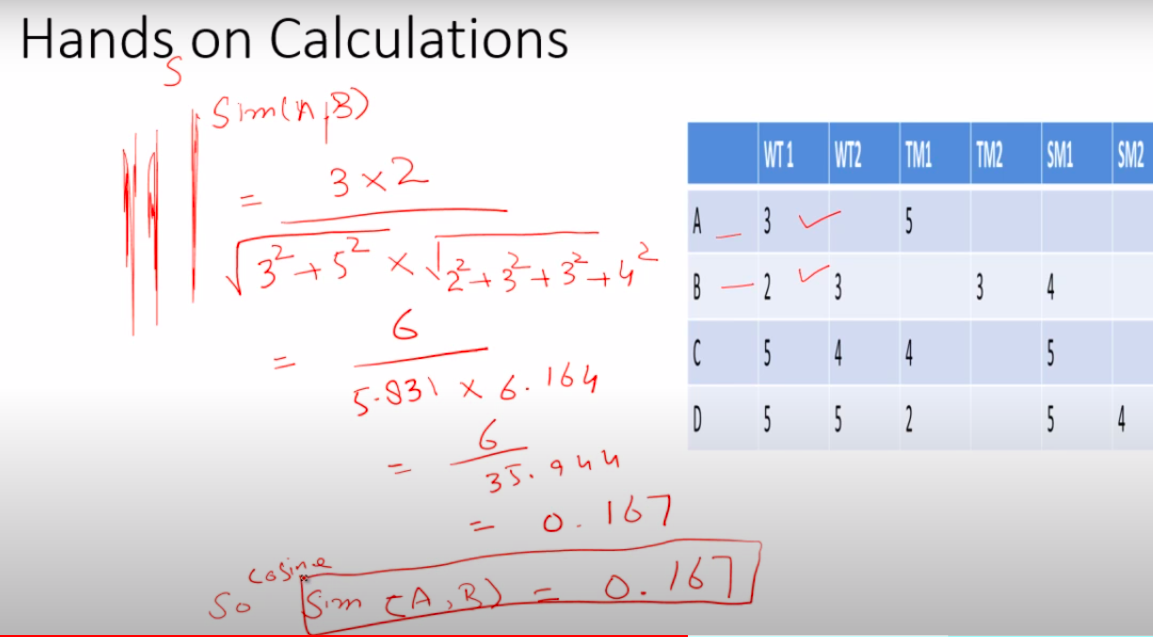 Hands on Calculations
S
Sim(A,B)
= 3 × 2
√3² + 5² × √2² + 3² + 3² + 4²
= 6
5.831 × 6.164
= 6
35.944
= 0.167
So cosine Sim (A,B) = 0.167
WT 1 WT2 TM1 TM2 SM1 SM2
A 3 ✓ 5
B 2 ✓ 3 3 4
C 5 4 4 5
D 5 5 2 5 4